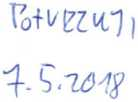 Potvrzuji
7.5.2018